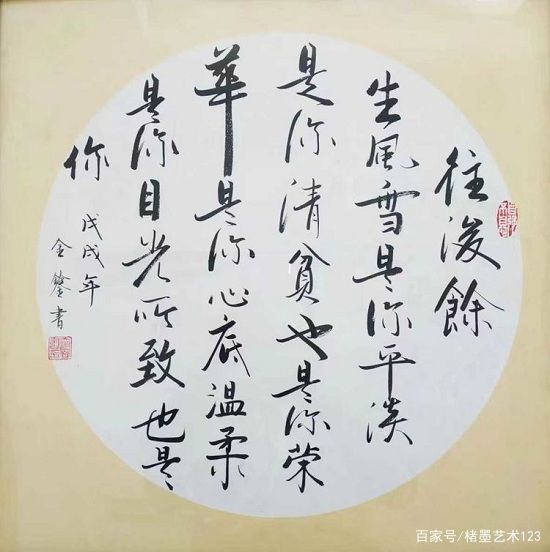 往後餘
生風雪是你平淡
是你清貧也是你荣
華是你心底温柔
是你目光所致也是
你
戊戌年
金鎣書
百家号/楮墨艺术123